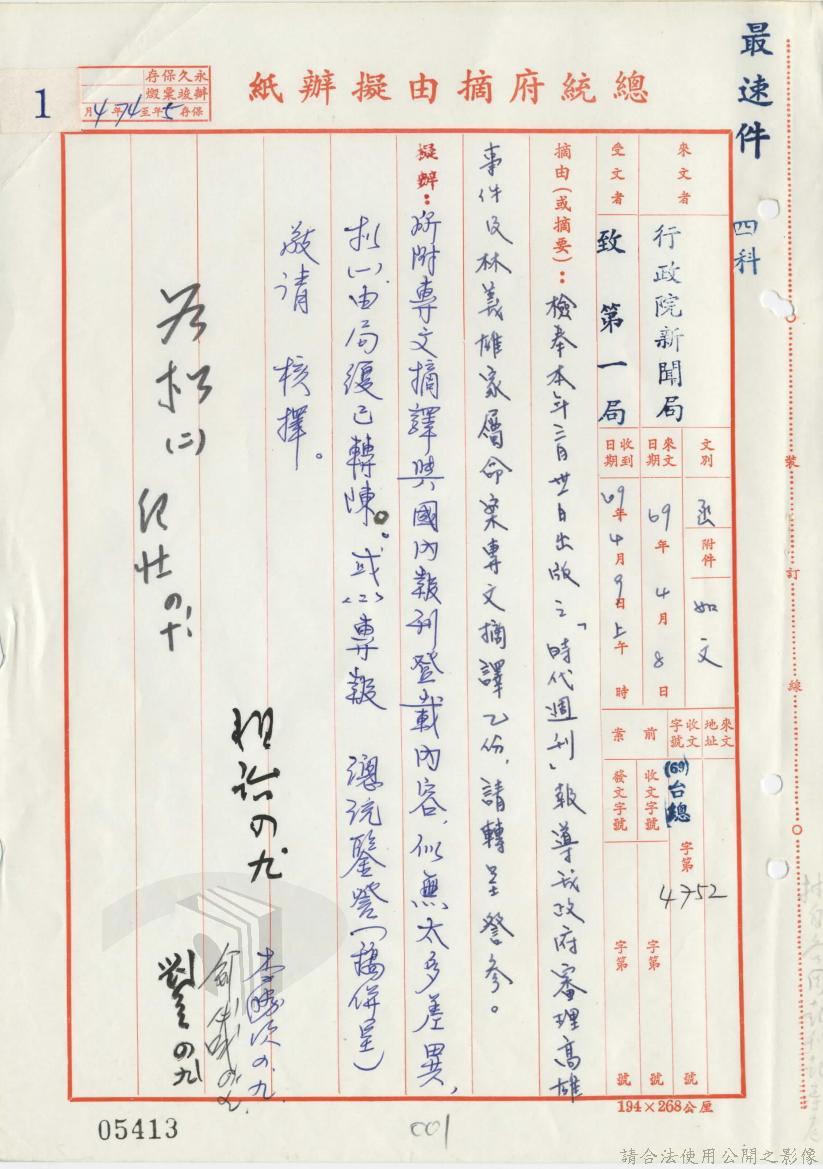 最速件 四科
總統府摘由擬辦紙
永久保存
辦竣票燬
保存5年至74年4月
1
來文者 行政院新聞局
受文者 致第一局
文別 函
附件 如文
來文日期 69年4月8日
收到日期 69年4月9日上午 時
來文地址
收文字號 (69)台總字第4752號
前案
收文字號 字第 號
發文字號 字第 號
摘由(或摘要)：檢奉本年三月卅日出版之「時代週刊」報導我政府審理高雄
事件及林義雄家屬命案專文摘譯乙份，請轉呈詧參。
擬辦：所附專文摘譯與國內報刊登載內容，似無太多差異，
擬(一)由局復已轉陳。或(二)專報 總統鑒詧(稿併呈)
敬請 核擇。
擬(二)
裝
訂
線
194×268公厘
05413
001
請合法使用公開之影像